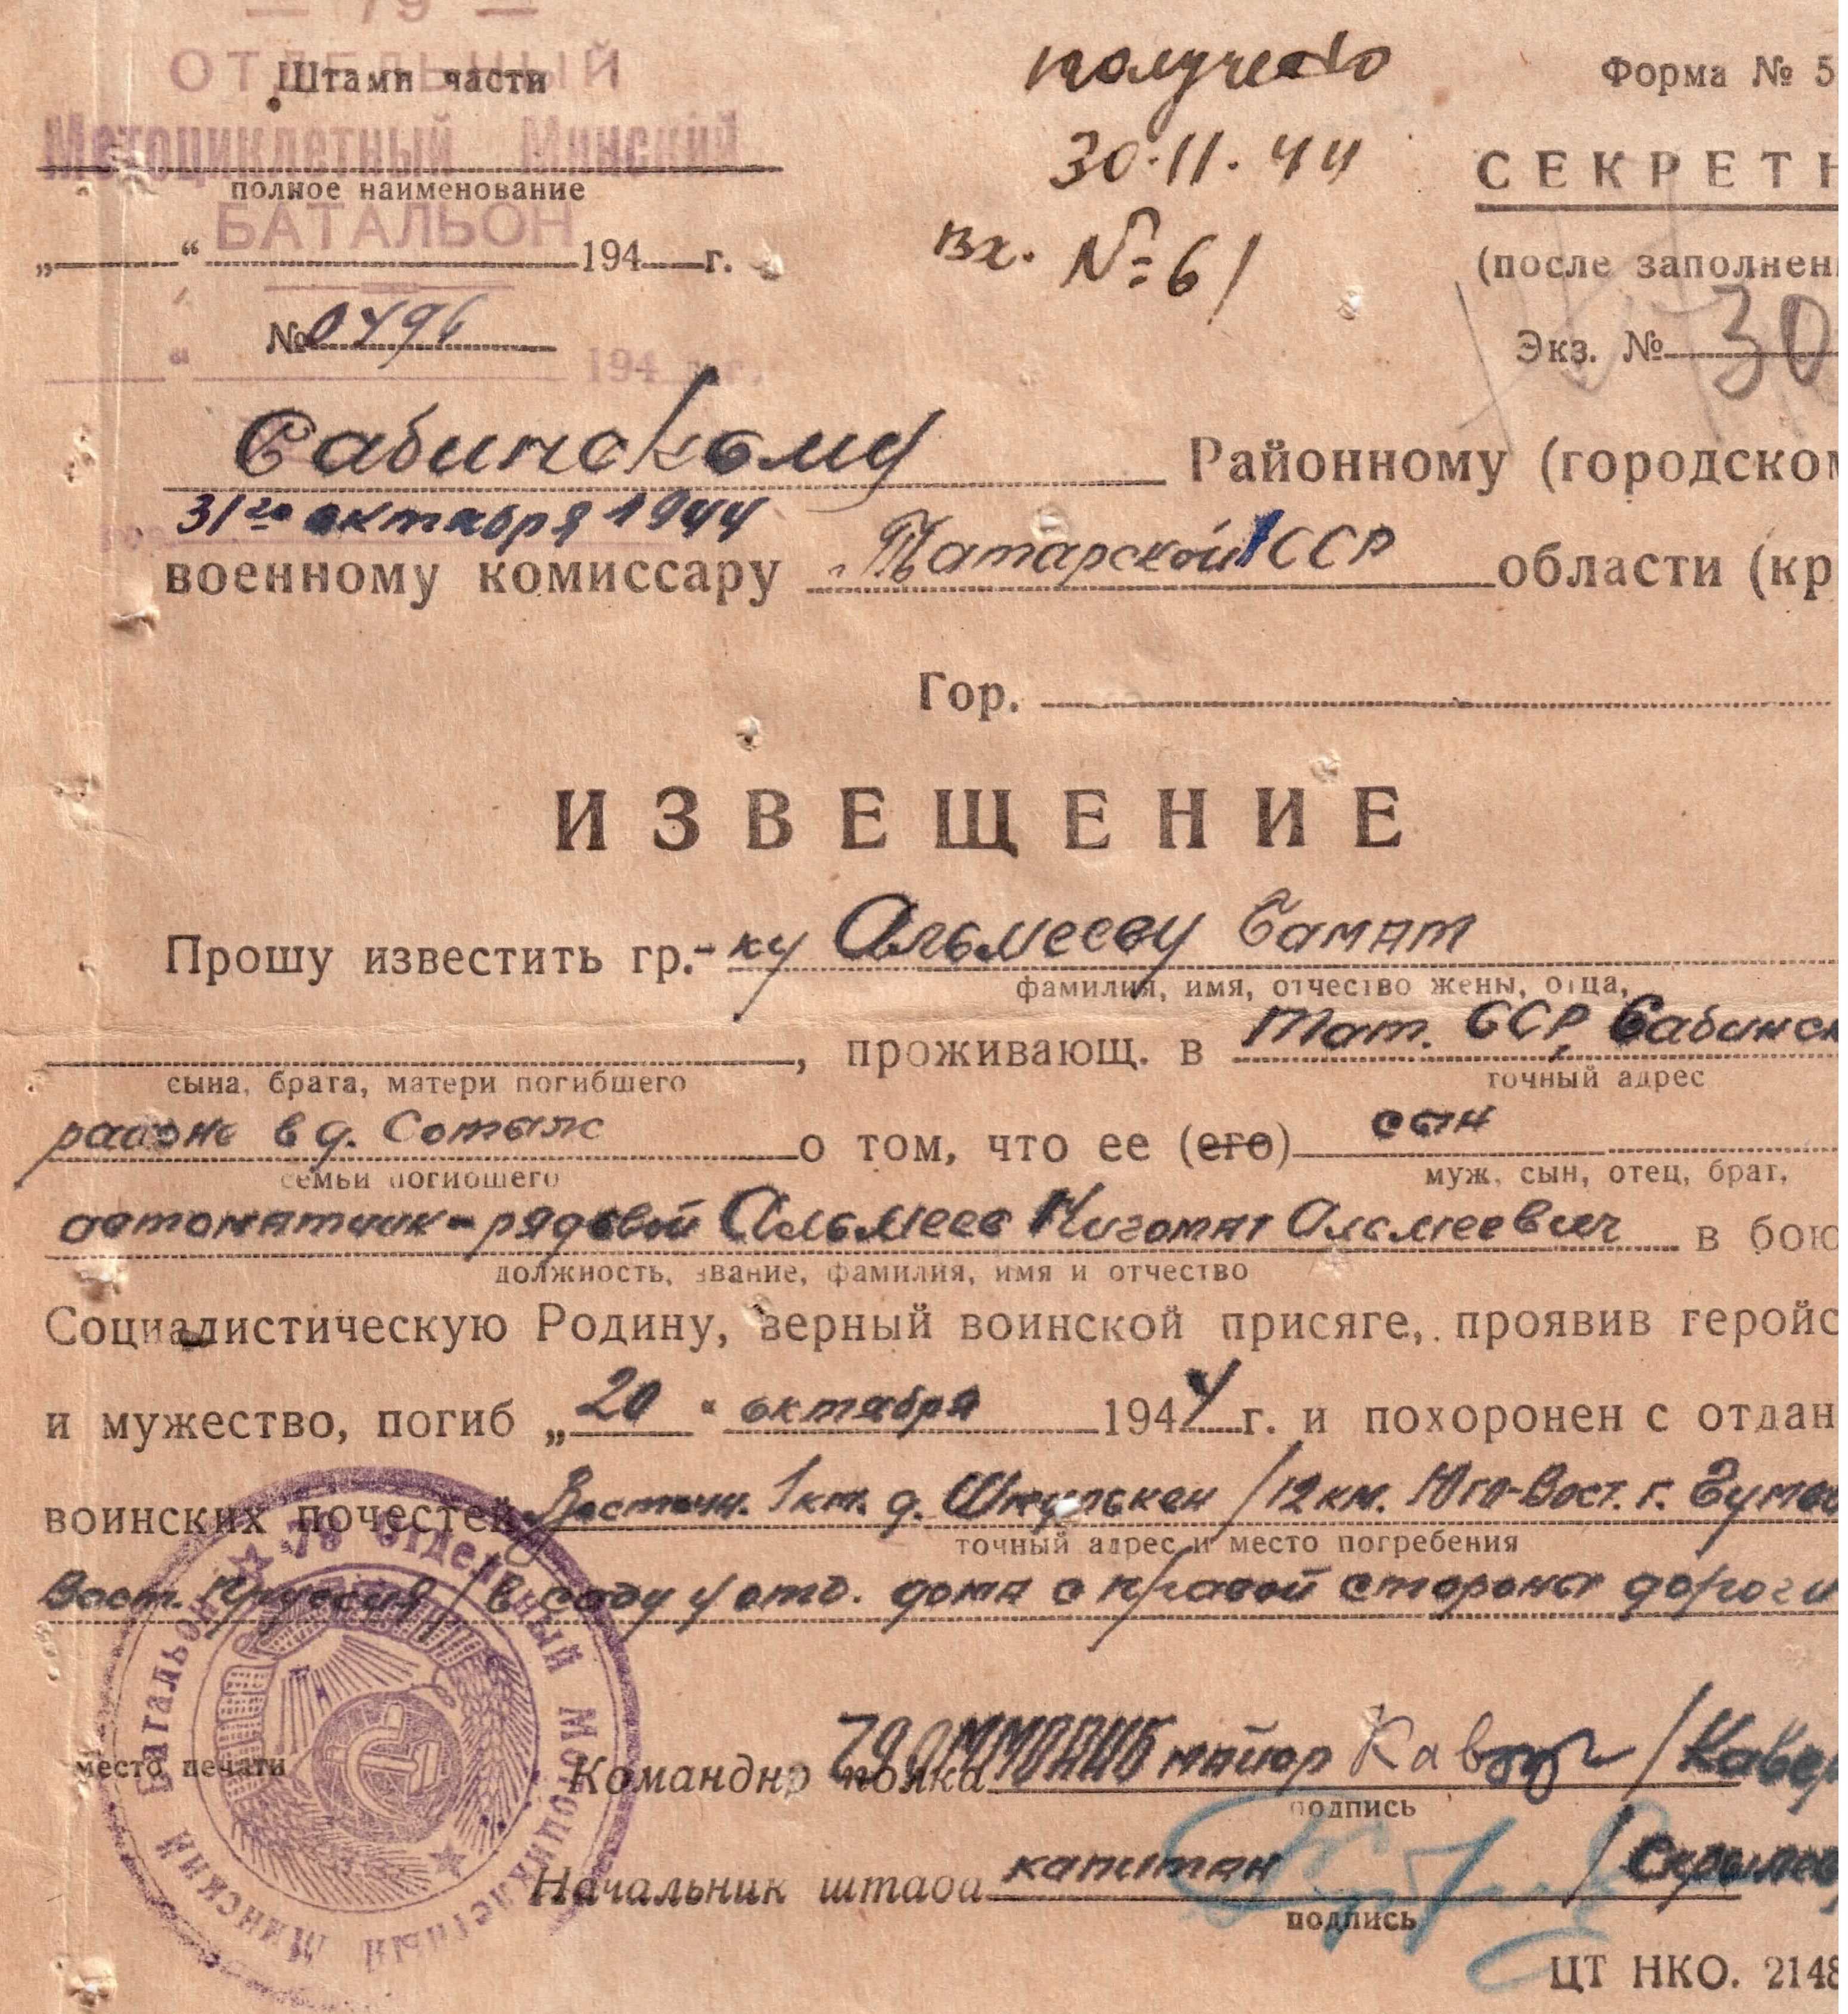 — 79 —
ОТДЕЛЬНЫЙ
Штамп части
Мотоциклетный Минский
полное наименование
БАТАЛЬОН
„ “ 194 г.
№ 0496
“ 194 г.
получено
30.11.44
вх. № 61
Форма № 5
СЕКРЕТН
(после заполнен
Экз. № 30
Сабинскому Районному (городском
31го октября 1944
военному комиссару Татарской ССР области (кр
Гор.
ИЗВЕЩЕНИЕ
Прошу известить гр.-ку Альмееву Самат
фамилия, имя, отчество жены, отца,
, проживающ. в Тат. ССР, Сабинск
сына, брата, матери погибшего точный адрес
районе в д. Сотылс о том, что ее (его) сын
семьи погибшего муж, сын, отец, брат,
автоматчик-рядовой Альмеев Нигомат Альмеевич в бою
должность, звание, фамилия, имя и отчество
Социалистическую Родину, верный воинской присяге, проявив геройс
и мужество, погиб „20“ октября 1944 г. и похоронен с отдан
воинских почестей Восточн. 1 км. д. Шкулькен /12 км. Юго-Вост. г.
точный адрес и место погребения
Вост. Пруссия/ в саду у отд. дома с правой стороны дороги
79 Отдельный Мотоциклетный Минский Батальон
место печати
Командир полка майор Кавер
подпись
Начальник штаба капитан
подпись
ЦТ НКО. 2148